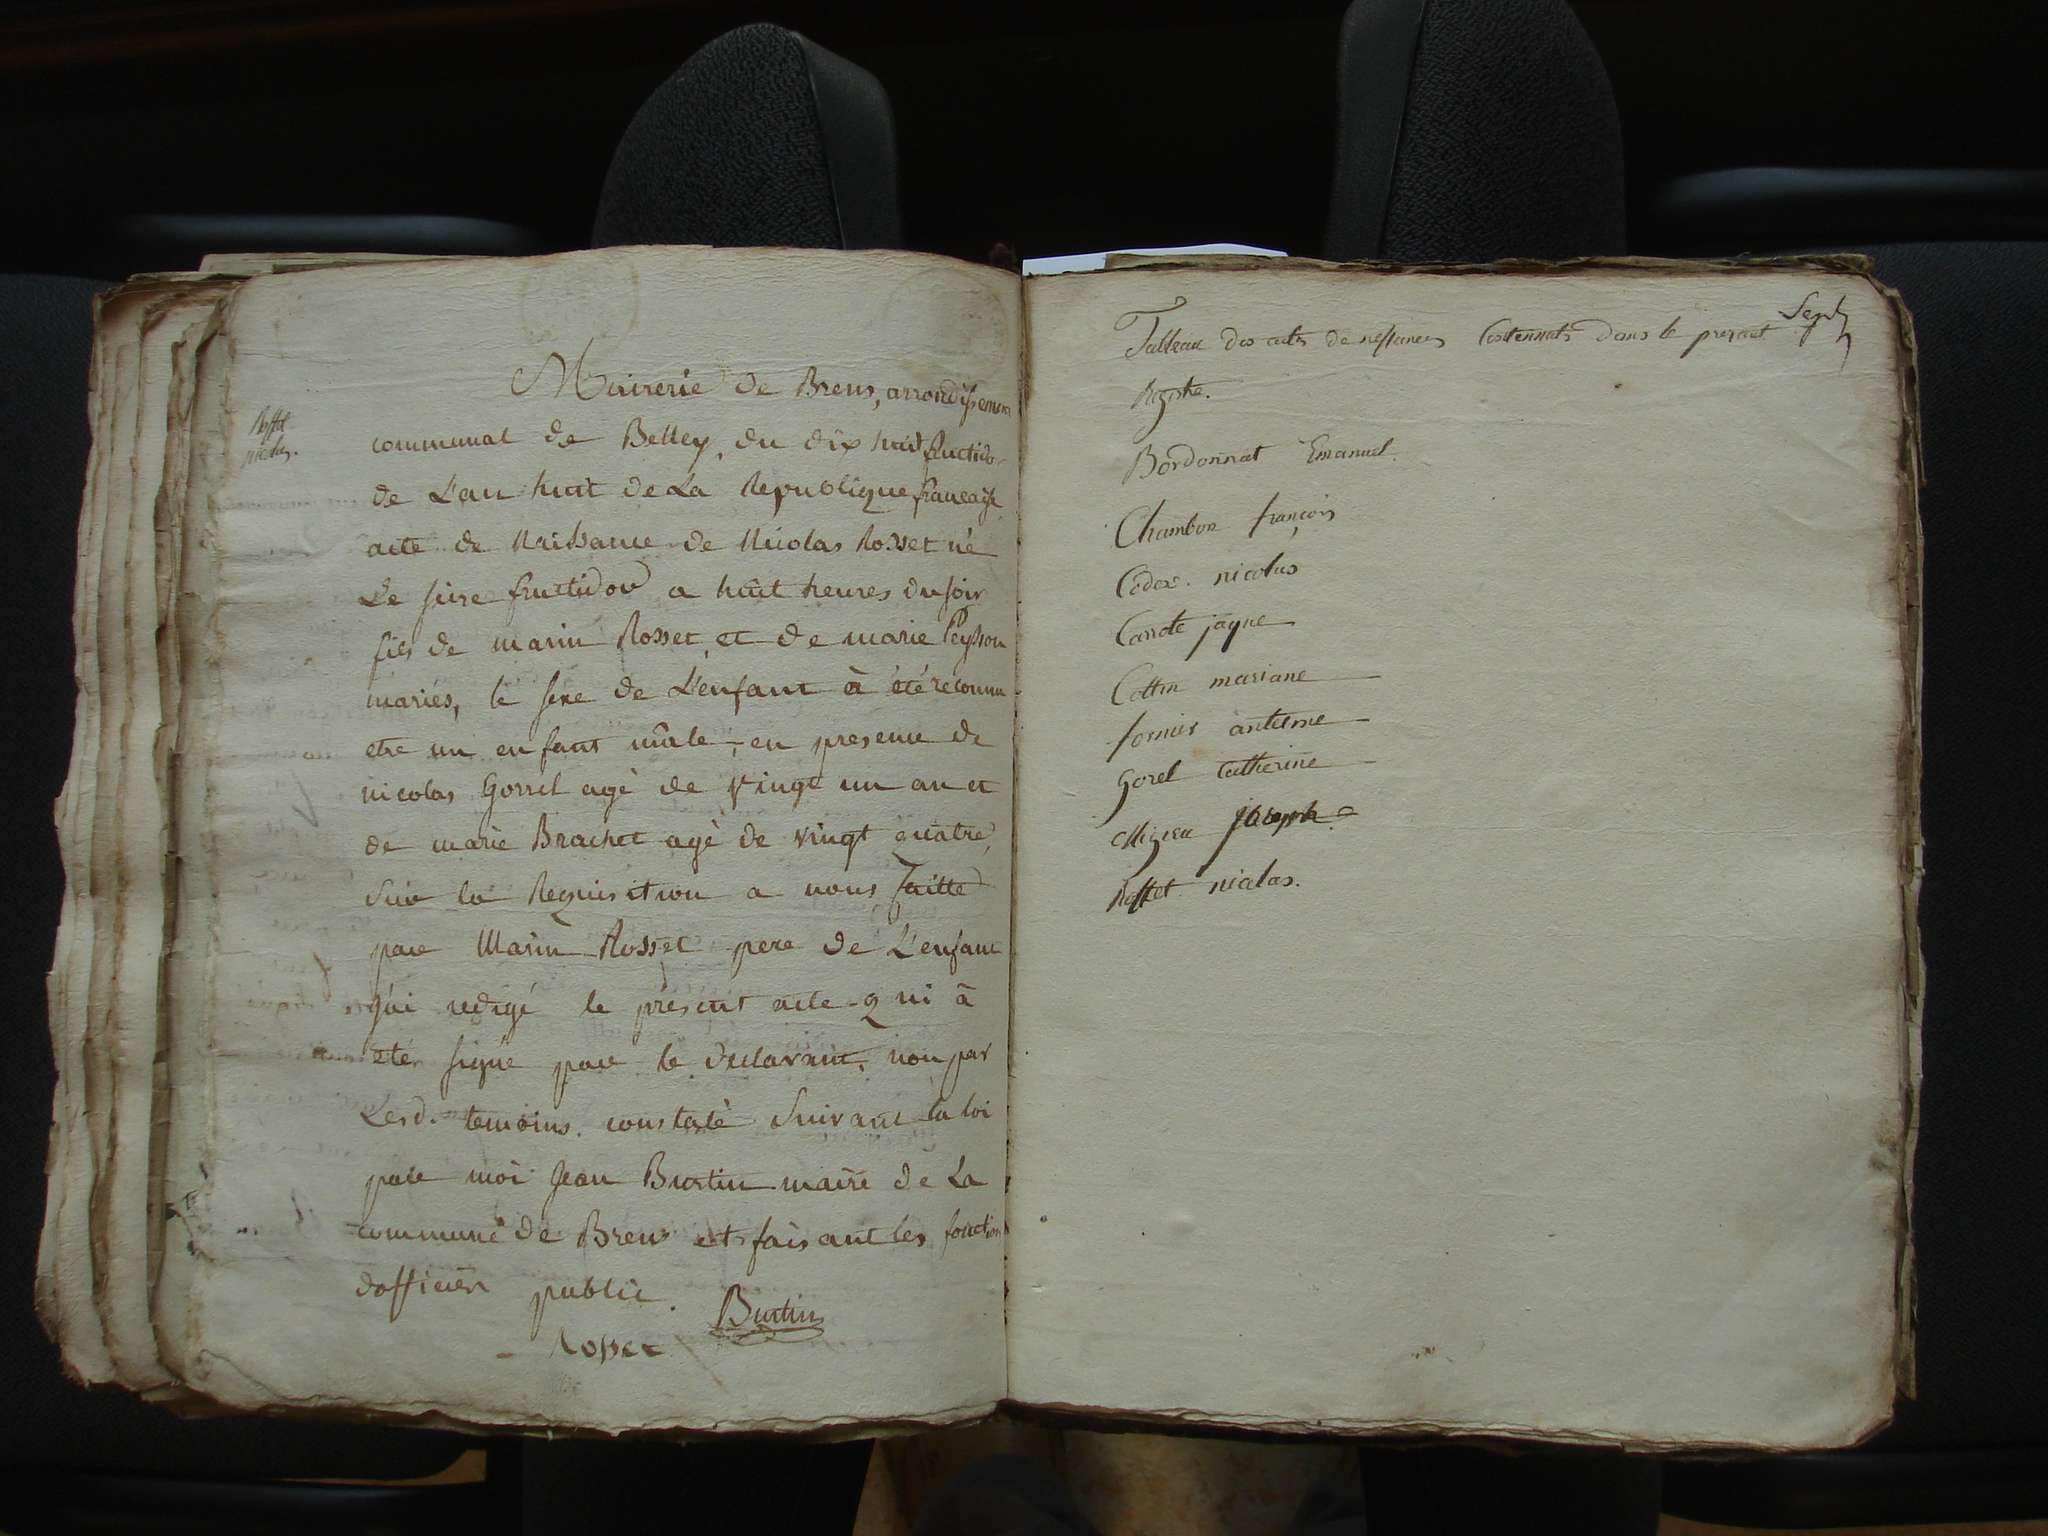 Rosset
nicolas.
Mairerie de Brens, arrondissemen
communal de Belley, du dix huit fructidor
de L'an huit de La Republique francaise
acte de Naissance de Nicolas Rosset né
Le seize fructidor a huit heures du soir
fils de marin Rosset, et de marie Peysson
mariés, le sexe de L'enfant à été reconnu
etre un enfant mâle, en presence de
nicolas Gorrel agé de vingt un an et
de marie Brachet agé de vingt quatre,
sur la Requisition a nous faitte
par Marin Rosset pere de L'enfant
qúi redigé le présent acte qui à
eté signé par le declarant, non par
Lesd. temoins. constaté Suivant la loi
par moi Jean Burtin maire de La
commune de Brens et faisant les fonction
dofficier public.
Burtin
Rosset
Sept
Tableau des actes de nessances Contennats dans le present
Registre.
Bordonnat Emanuel.
Chambon françois
Codex. nicolas
Carrote jaque
Cottin mariane
fornier antelme
Gorel Catherine
Migieu Joseph.
Rosset nicolas.